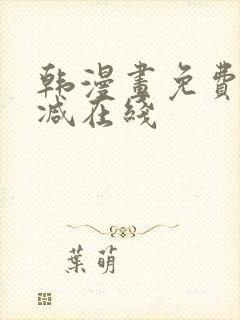 韩漫畫免費
减在綫
葉萌